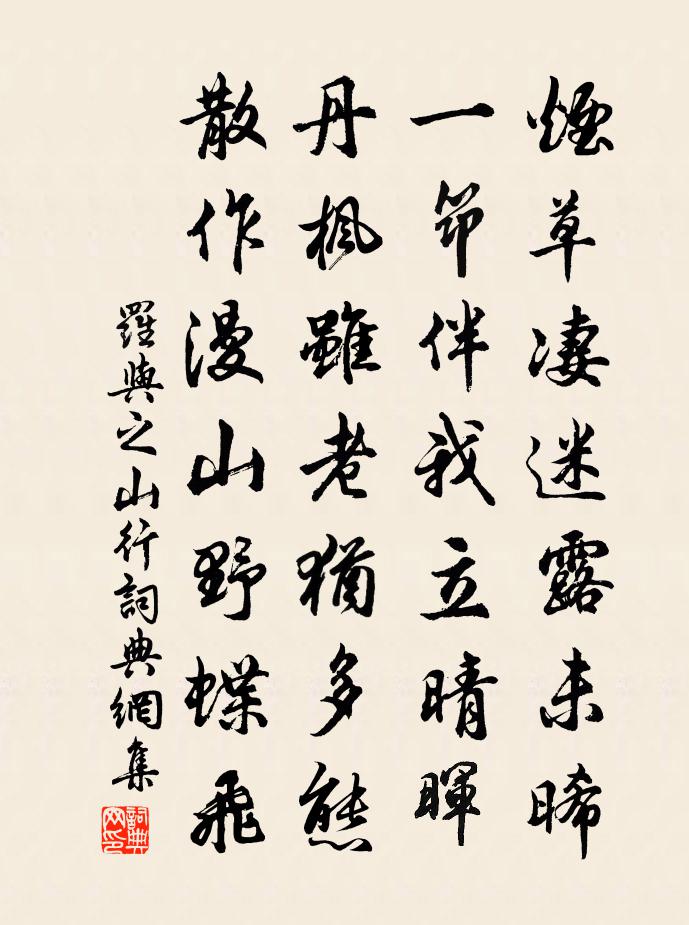 煙草凄迷露未晞
一筇伴我立晴暉
丹楓雖老猶多態
散作漫山野蝶飛
羅與之山行詞典網集
詞典网印